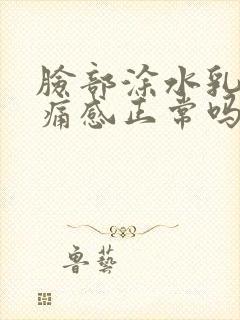 脸部涂水乳
痛感正常吗
鲁艺